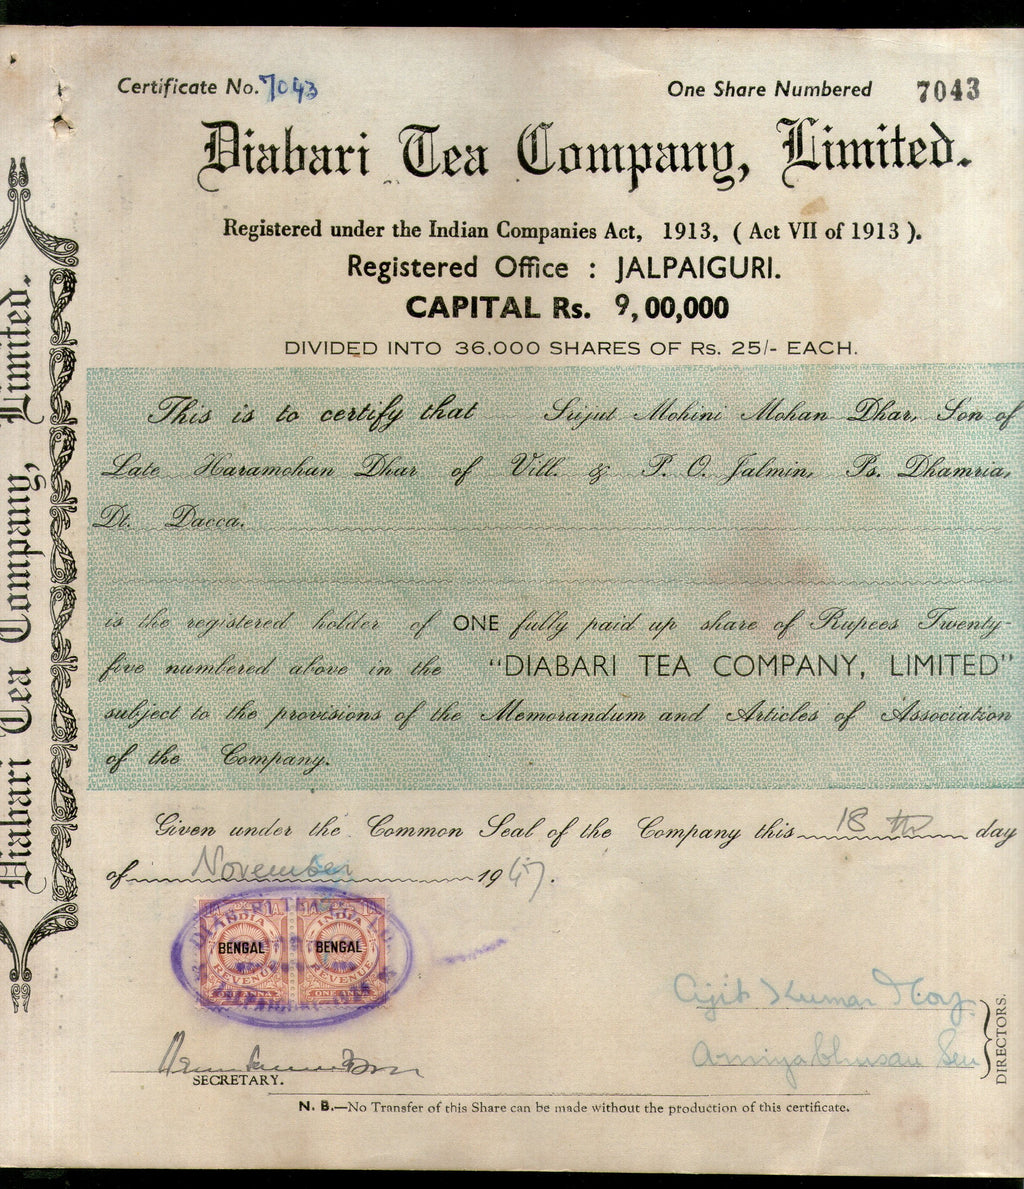 Certificate No. 7043
One Share Numbered 7043
Diabari Tea Company, Limited.
Registered under the Indian Companies Act, 1913, ( Act VII of 1913 ).
Registered Office : JALPAIGURI.
CAPITAL Rs. 9,00,000
DIVIDED INTO 36,000 SHARES OF Rs. 25/- EACH.
This is to certify that Srijut Mohini Mohan Dhar, Son of
Late Haramohan Dhar of Vill. & P. O. Jalmin, Ps. Dhamria,
Dt. Dacca.
is the registered holder of ONE fully paid up share of Rupees Twenty-
five numbered above in the "DIABARI TEA COMPANY, LIMITED"
subject to the provisions of the Memorandum and Articles of Association
of the Company.
Given under the Common Seal of the Company this 18 th day
of November 1947.
INDIA INDIA
BENGAL BENGAL
REVENUE REVENUE
ONE ANNA
Ajit Kumar
Amiyabhusan Sen
DIRECTORS.
SECRETARY.
N. B.—No Transfer of this Share can be made without the production of this certificate.
Diabari Tea Company, Limited.